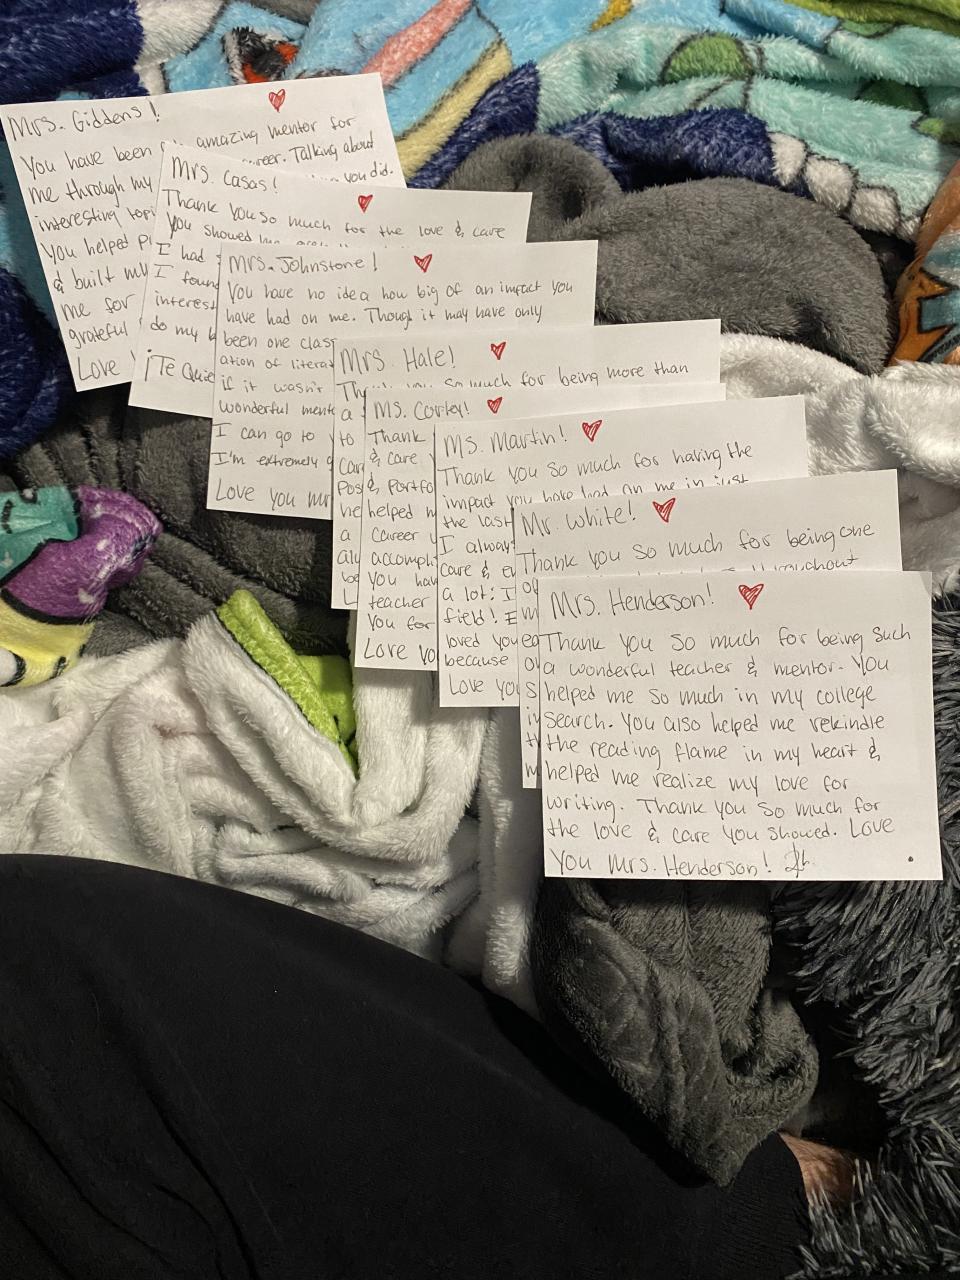 Mrs. Giddens!
You have been amazing mentor for
me through my career. Talking about
interesting topi you did.
You helped
& built my
me for
grateful
Love
Mrs. Casas!
Thank you so much for the love & care
you showed me
I had
I found
interest
do my
¡Te Quie
Mrs. Johnstone!
You have no idea how big of an impact you
have had on me. Though it may have only
been one clas
ation of literat
if it wasn't
wonderful mento
I can go to
I'm extremely g
Love you Mr
Mrs. Hale!
Thank you so much for being more than
a
to
Car
Pos
he
a
alw
be
Ms. Corley!
Thank
& care
& portfo
helped m
career
accompli
You hav
teacher
you for
Love yo
Ms. Martin!
Thank you so much for having the
impact you have had on me in just
the last
I always
care & en
a lot: I
field! I
loved you
because
Love you
Mr. White!
Thank you so much for being one
of throughout
m
ea
ov
s
in
th
m
Mrs. Henderson!
Thank you so much for being such
a wonderful teacher & mentor. You
helped me so much in my college
search. You also helped me rekindle
the reading flame in my heart &
helped me realize my love for
writing. Thank you so much for
the love & care you showed. Love
You Mrs. Henderson!